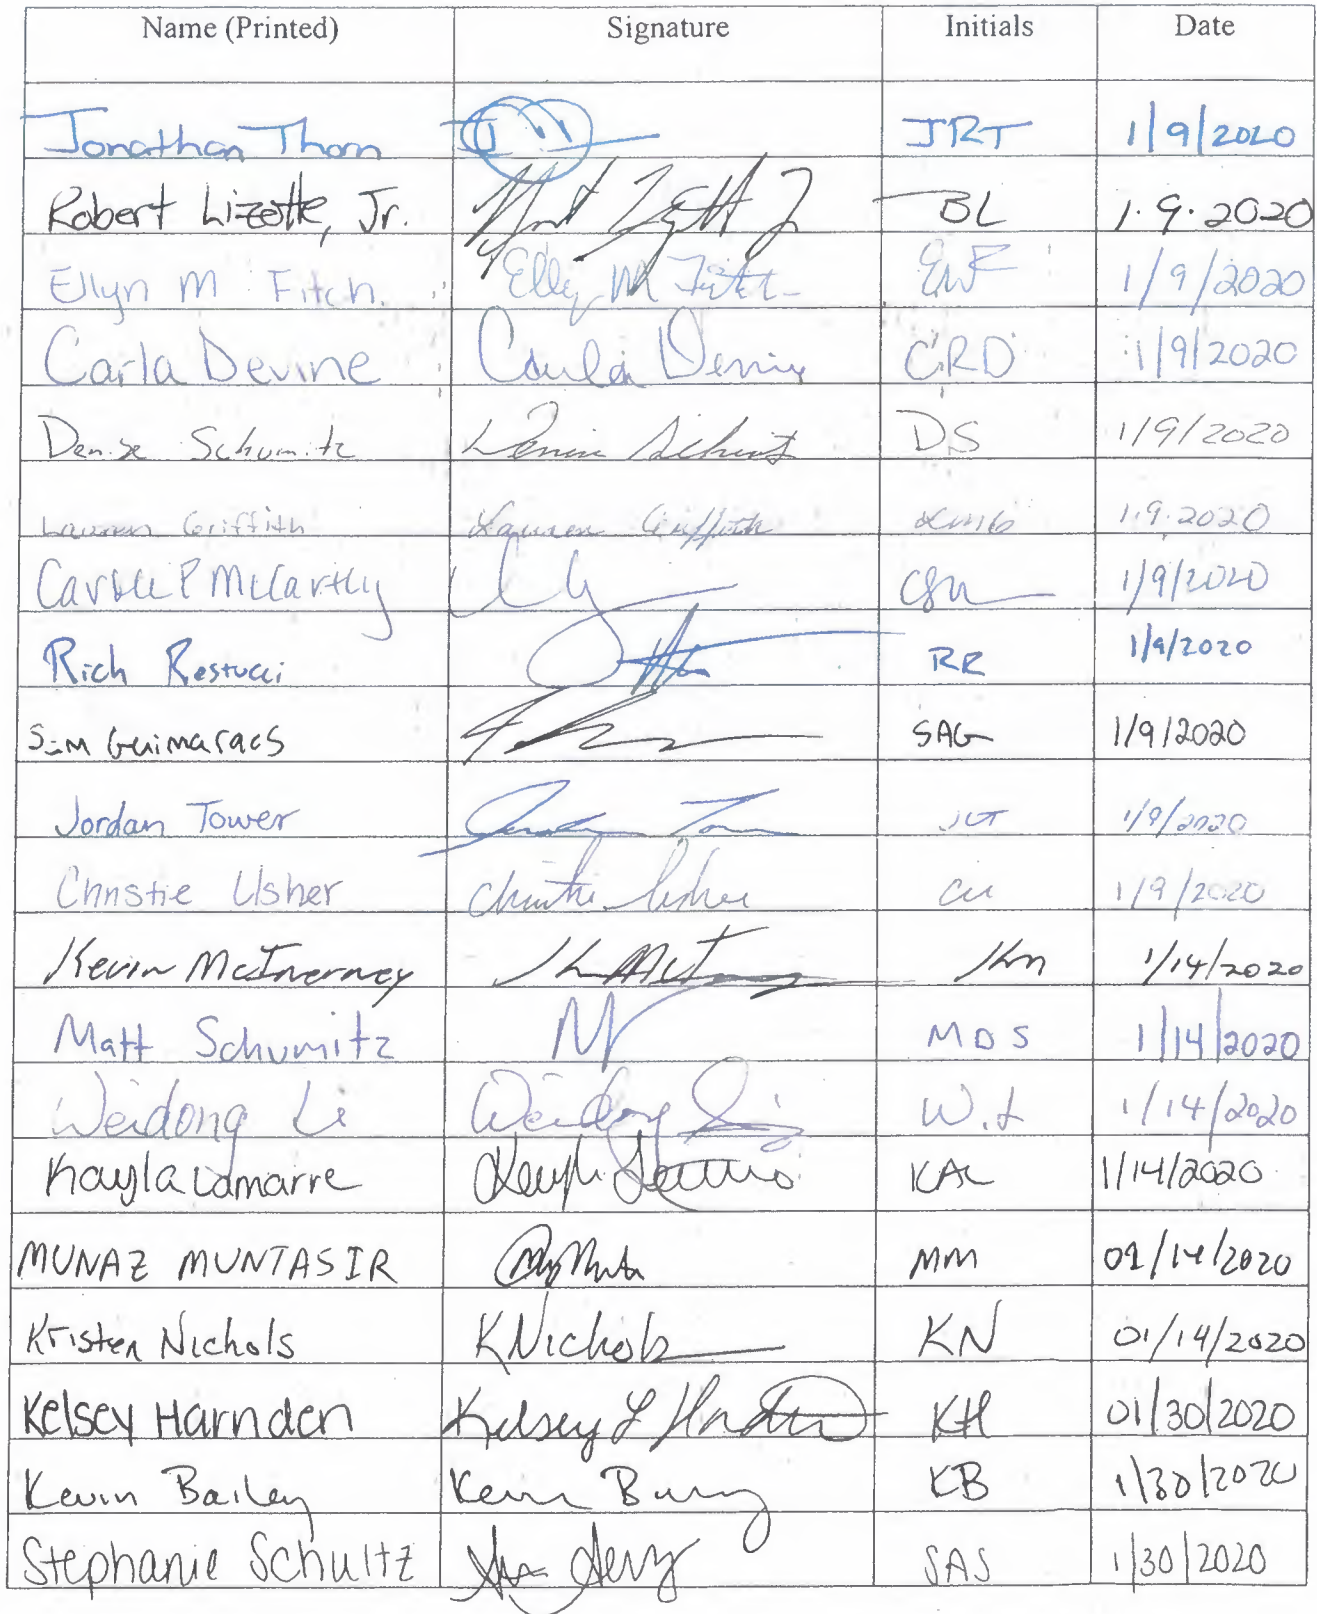 Name (Printed) Signature Initials Date
Jonathan Thorn JRT 1/9/2020
Robert Lizotte, Jr. BL 1.9.2020
Ellyn M Fitch Ellyn M Fitch EMF 1/9/2020
Carla Devine Carla Devine CRD 1/9/2020
Denise Schumitz Denise Schumitz DS 1/9/2020
Lauren Griffith Lauren Griffith 1.9.2020
McCarthy 1/9/2020
Rich Restucci RR 1/9/2020
Sam Guimaraes SAG 1/9/2020
Jordan Tower Jordan Tower JCT 1/9/2020
Christie Usher Christie Usher CU 1/9/2020
Kevin McInerney KM 1/14/2020
Matt Schumitz MDS 1/14/2020
Weidong Li Weidong Li W.L 1/14/2020
Kayla Lamarre Kayla Lamarre KAL 1/14/2020
MUNAZ MUNTASIR MM 01/14/2020
Kristen Nichols KNichols KN 01/14/2020
Kelsey Harnden Kelsey L Harnden KH 01/30/2020
Kevin Bailey Kevin KB 1/30/2020
Stephanie Schultz SAS 1/30/2020